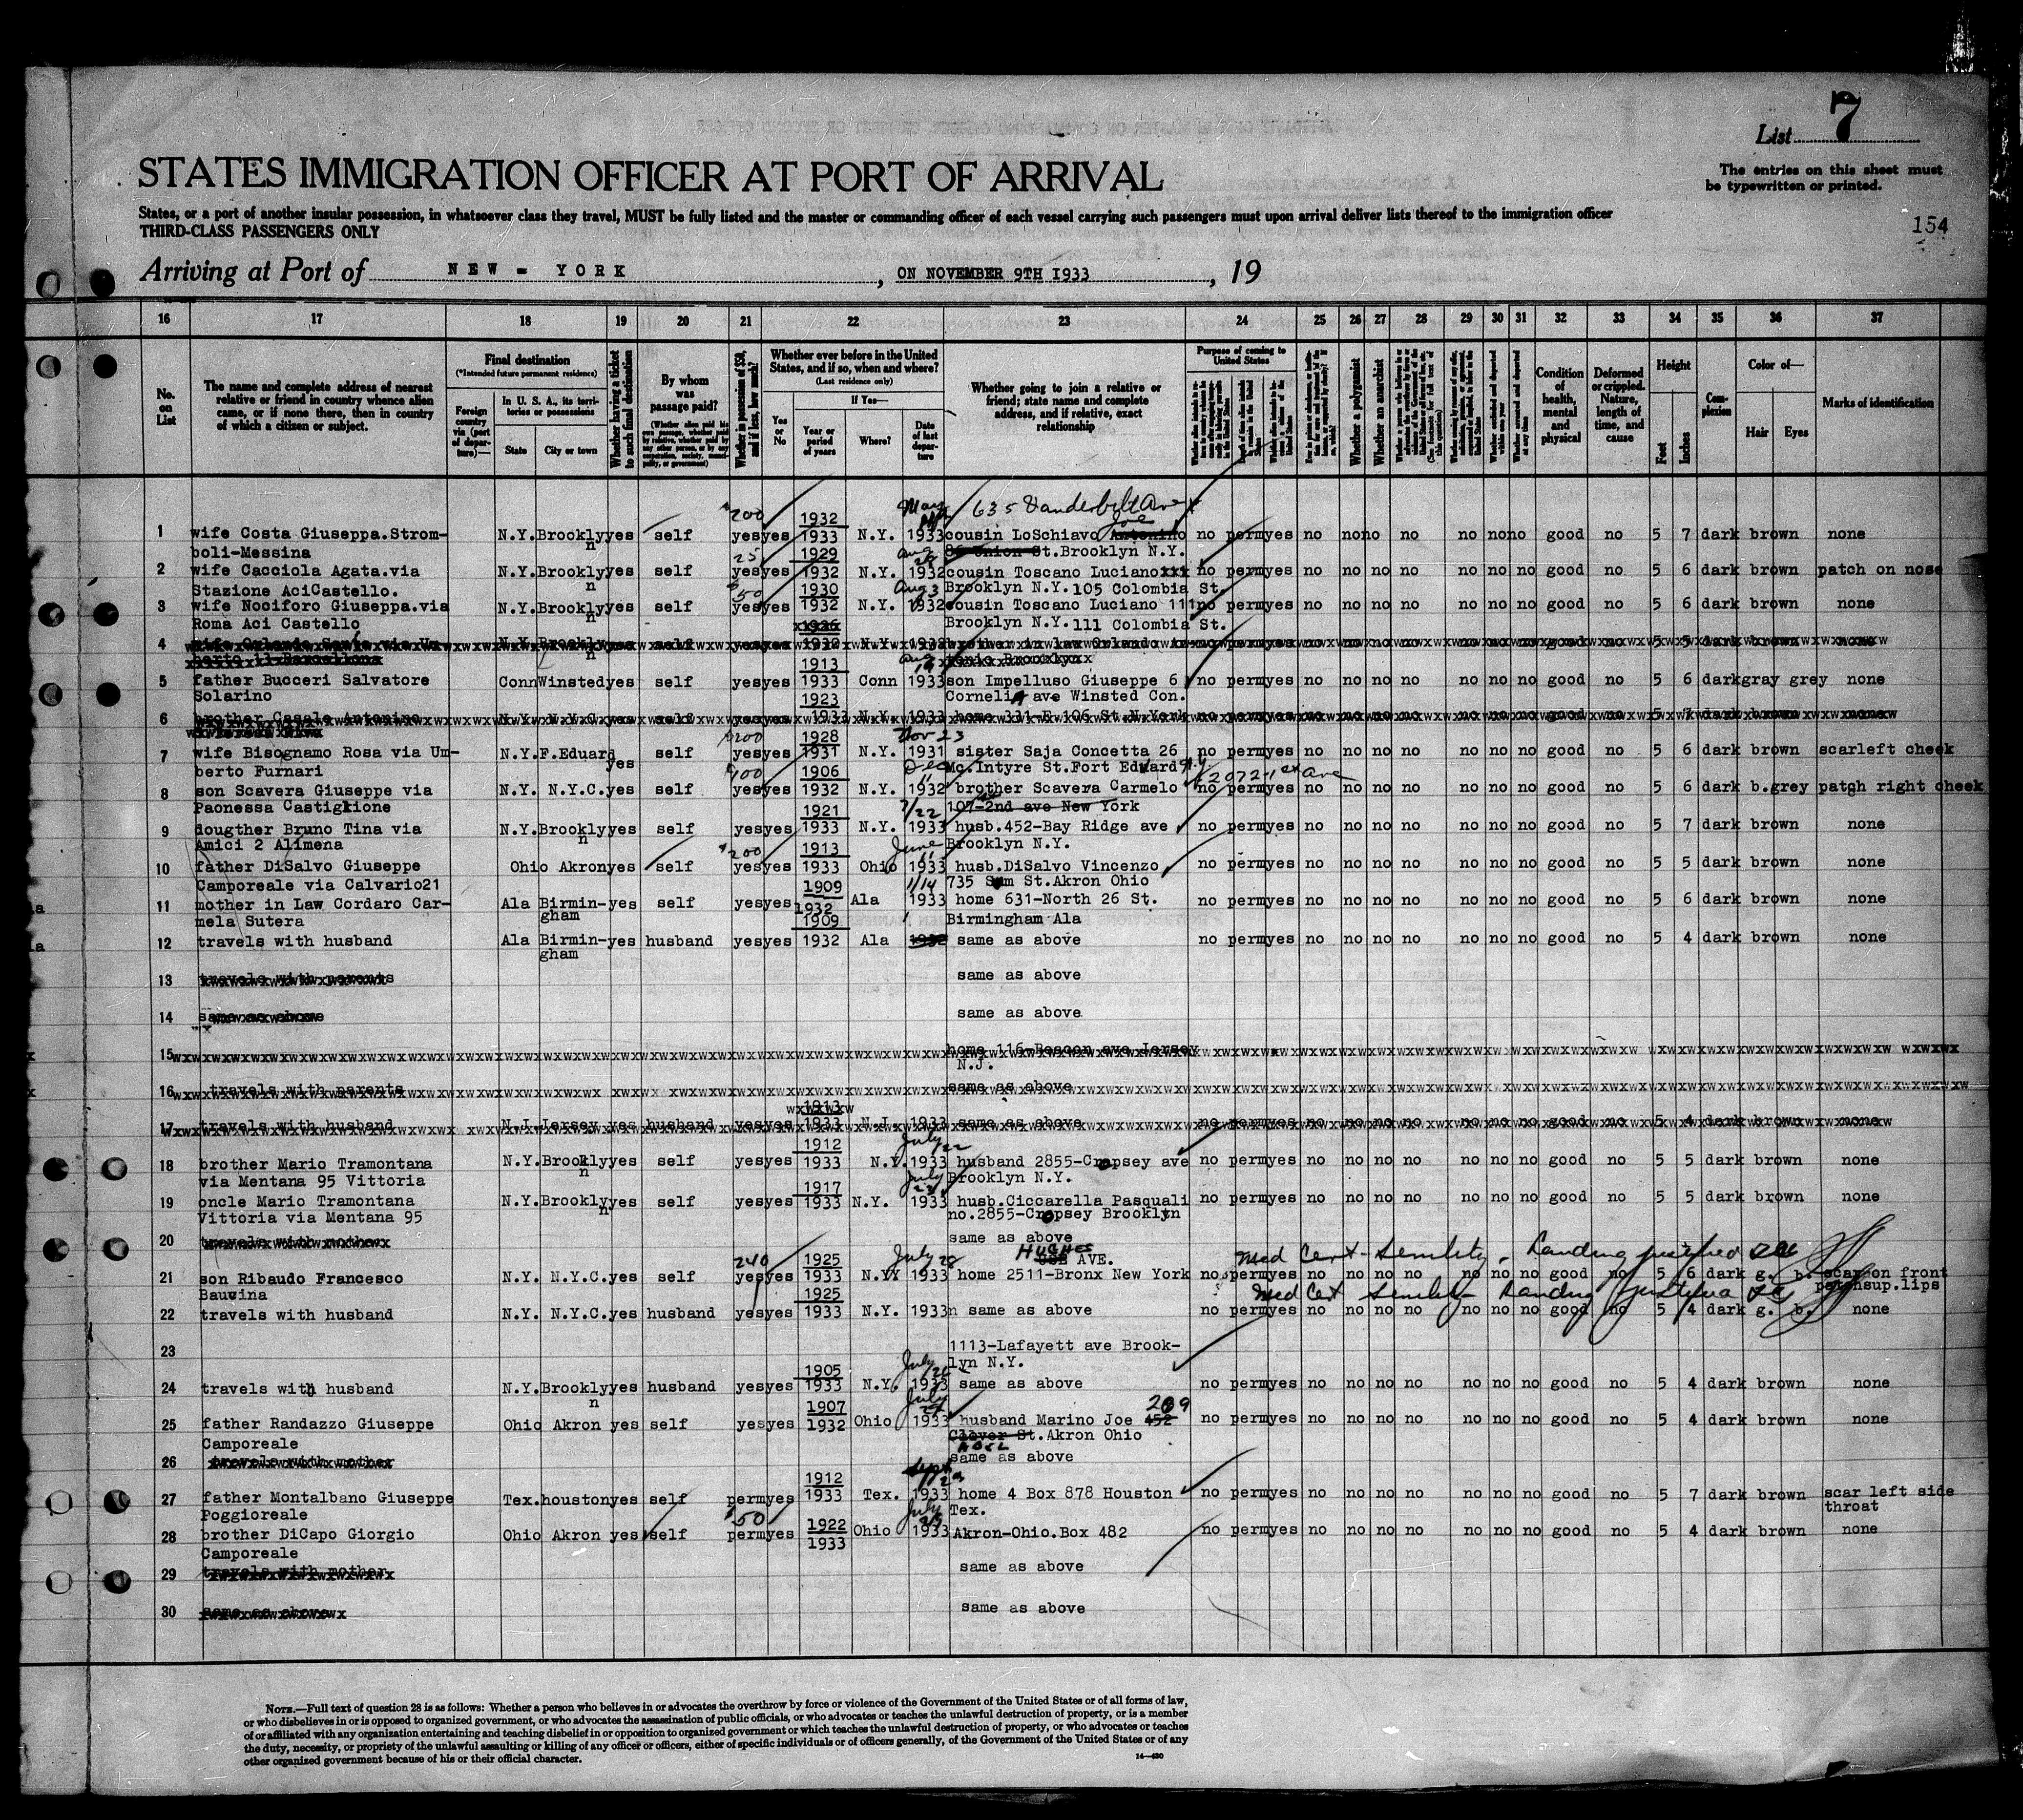 List 7
The entries on this sheet must
be typewritten or printed.
STATES IMMIGRATION OFFICER AT PORT OF ARRIVAL
States, or a port of another insular possession, in whatsoever class they travel, MUST be fully listed and the master or commanding officer of each vessel carrying such passengers must upon arrival deliver lists thereof to the immigration officer
THIRD-CLASS PASSENGERS ONLY
154
Arriving at Port of NEW - YORK, ON NOVEMBER 9TH 1933, 19
16 17 18 19 20 21 22 23 24 25 26 27 28 29 30 31 32 33 34 35 36 37
No. on List
The name and complete address of nearest relative or friend in country whence alien came, or if none there, then in country of which a citizen or subject.
Final destination
(*Intended future permanent residence)
Foreign country via (port of departure)—
In U. S. A., its territories or possessions
State
City or town
Whether having a ticket to such final destination
By whom was passage paid?
(Whether alien paid his own passage, whether paid by relative, whether paid by any other person, or by any corporation, society, municipality, or government)
Whether in possession of $50, and if less, how much?
Whether ever before in the United States, and if so, when and where?
(Last residence only)
Yes or No
If Yes—
Year or period of years
Where?
Date of last departure
Whether going to join a relative or friend; state name and complete address, and if relative, exact relationship
Purpose of coming to United States
Whether a polygamist
Whether an anarchist
Condition of health, mental and physical
Deformed or crippled. Nature, length of time, and cause
Height
Feet
Inches
Complexion
Color of—
Hair
Eyes
Marks of identification
$200 1932 May 635 Vanderbilt Ave
1 wife Costa Giuseppa.Strom- N.Y. Brooklyn yes self yes yes 1933 N.Y. 1933 cousin LoSchiavo Joe no perm yes no no no no no no no good no 5 7 dark brown none
boli-Messina 25 1929 Aug St.Brooklyn N.Y.
2 wife Cacciola Agata.via N.Y. Brooklyn yes self yes yes 1932 N.Y. 1932 cousin Toscano Luciano xxx no perm yes no no no no no no no good no 5 6 dark brown patch on nose
Stazione AciCastello. $50 1930 Aug 3 Brooklyn N.Y. 105 Colombia St.
3 wife Nociforo Giuseppa.via N.Y. Brooklyn yes self yes yes 1932 N.Y. 1932 cousin Toscano Luciano 111 no perm yes no no no no no no no good no 5 6 dark brown none
Roma Aci Castello 1926 Brooklyn N.Y. 111 Colombia St.
4 N.Y. Brooklyn yes self yes yes 1932 N.Y. 1932 brother in law Orlando An- no perm yes no no no no no no no good no 5 5 dark brown none
1913 Aug tonio Brooklyn
5 father Bucceri Salvatore Conn Winsted yes self yes yes 1933 Conn 1933 son Impelluso Giuseppe 6 no perm yes no no no no no no no good no 5 6 dark gray grey none
Solarino 1923 Cornelia ave Winsted Con.
6 brother Casale Antonino N.Y. N.Y.C. yes self yes yes 1933 N.Y. 1933 home 331-E 106 St N.York no perm yes no no no no no no no good no 5 7 dark brown none
$200 1928 Nov 23
7 wife Bisognamo Rosa via Um- N.Y. F.Eduard yes self yes yes 1931 N.Y. 1931 sister Saja Concetta 26 no perm yes no no no no no no no good no 5 6 dark brown scar left cheek
berto Furnari $100 1906 Dec 11 Mc.Intyre St.Fort Edward N.Y.
8 son Scavera Giuseppe via N.Y. N.Y.C. yes self yes yes 1932 N.Y. 1932 brother Scavera Carmelo 2072-1st ave no perm yes no no no no no no no good no 5 6 dark b.grey patch right cheek
Paonessa Castiglione 1921 7/22 107-2nd ave New York
9 dougther Bruno Tina via N.Y. Brooklyn yes self yes yes 1933 N.Y. 1933 husb.452-Bay Ridge ave no perm yes no no no no no no no good no 5 7 dark brown none
Amici 2 Alimena $200 1913 June 11 Brooklyn N.Y.
10 father DiSalvo Giuseppe Ohio Akron yes self yes yes 1933 Ohio 1933 husb.DiSalvo Vincenzo no perm yes no no no no no no no good no 5 5 dark brown none
Camporeale via Calvario21 1909 1/14 735 St.Akron Ohio
11 mother in Law Cordaro Car- Ala Birmin- yes self yes yes 1932 Ala 1933 home 631-North 26 St. no perm yes no no no no no no no good no 5 6 dark brown none
mela Sutera gham 1909 Birmingham Ala
12 travels with husband Ala Birmin- yes husband yes yes 1932 Ala 1932 same as above no perm yes no no no no no no no good no 5 4 dark brown none
gham
13 travels with parents same as above
14 same as above same as above
15 home 116-Beacon ave Jersey
N.J.
16 travels with parents same as above
1913
17 travels with husband N.J. Jersey yes husband yes yes 1933 N.J. 1933 same as above no perm yes no no no no no no no good no 5 4 dark brown none
1912 July 22
18 brother Mario Tramontana N.Y. Brooklyn yes self yes yes 1933 N.Y. 1933 husband 2855-Cropsey ave no perm yes no no no no no no no good no 5 5 dark brown none
via Mentana 95 Vittoria 1917 July Brooklyn N.Y.
19 oncle Mario Tramontana N.Y. Brooklyn yes self yes yes 1933 N.Y. 1933 husb.Ciccarella Pasquali no perm yes no no no no no no no good no 5 5 dark brown none
Vittoria via Mentana 95 no.2855-Cropsey Brooklyn
20 travels with mother same as above
240 1925 July 28 HUGHES AVE. Med Cert - Senility - Landing justified
21 son Ribaudo Francesco N.Y. N.Y.C. yes self yes yes 1933 N.Y. 1933 home 2511-Bronx New York no perm yes no no no no no no no good no 5 6 dark g. b. scar on front
Bauvina 1925 Med Cert Senility - Landing patch sup.lips
22 travels with husband N.Y. N.Y.C. yes husband yes yes 1933 N.Y. 1933 n same as above no perm yes no no no no no no no good no 5 4 dark g. b. none
23 1113-Lafayett ave Brook-
1905 July lyn N.Y.
24 travels with husband N.Y. Brooklyn yes husband yes yes 1933 N.Y. 1933 same as above no perm yes no no no no no no no good no 5 4 dark brown none
1907 July 209
25 father Randazzo Giuseppe Ohio Akron yes self yes yes 1932 Ohio 1933 husband Marino Joe 452 no perm yes no no no no no no no good no 5 4 dark brown none
Camporeale Clover St.Akron Ohio
26 travels with mother same as above
1912 Sept
27 father Montalbano Giuseppe Tex. houston yes self perm yes 1933 Tex. 1933 home 4 Box 878 Houston no perm yes no no no no no no no good no 5 7 dark brown scar left side
Poggioreale $50 July Tex. throat
28 brother DiCapo Giorgio Ohio Akron yes self perm yes 1922 Ohio 1933 Akron-Ohio.Box 482 no perm yes no no no no no no no good no 5 4 dark brown none
Camporeale 1933
29 travels with mother same as above
30 same as above same as above
NOTE.—Full text of question 28 is as follows: Whether a person who believes in or advocates the overthrow by force or violence of the Government of the United States or of all forms of law,
or who disbelieves in or is opposed to organized government, or who advocates the assassination of public officials, or who advocates or teaches the unlawful destruction of property, or is a member
of or affiliated with any organization entertaining and teaching disbelief in or opposition to organized government or which teaches the unlawful destruction of property, or who advocates or teaches
the duty, necessity, or propriety of the unlawful assaulting or killing of any officer or officers, either of specific individuals or of officers generally, of the Government of the United States or of any
other organized government because of his or their official character.
14—430